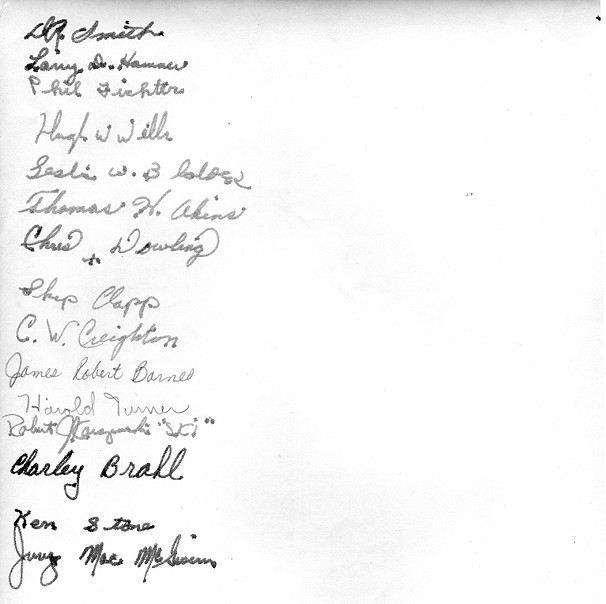 D.R. Smith
Larry D. Hammer
Phil Fichters
Hugh W Wills
Leslie W. B
Thomas H. Akins
Chris Dowling
Skip Clapp
C. W. Creighton
James Robert Barnes
Harold Turner
Robert "SKI"
Charley Brahl
Ken Stone
Mac McGivern